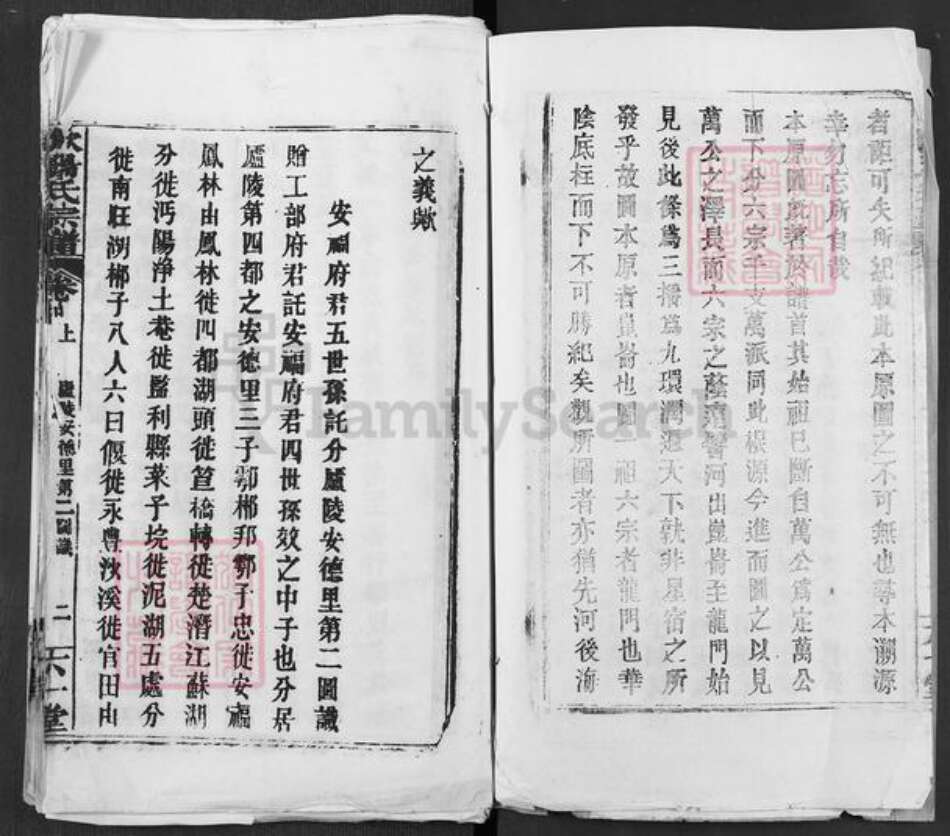 者詎可失所紀載此本原圖之不可無也尋本溯源
幸勿忘所自哉
本原圖既著於譜首其始祖已斷自萬公爲定萬公
而下分六宗千支萬派同此根源今進而圖之以見
萬公之澤長而六宗之蔭遠譬河出崑崙至龍門始
見後此條爲三播爲九環濶迴天下孰非星宿之所
發乎故圖本原者崑崙也圖一祖六宗者龍門也華
陰底柱而下不可勝紀矣觀所圖者亦猶先河後海
之義歟
安福府君五世孫託分廬陵安德里第二圖識
贈工部府君託安福府君四世孫效之中子也分居
廬陵第四都之安德里三子鄂郴邦鄂子忠徙安福
鳳林由鳳林徙四都湖頭徙笪橋轉徙楚潛江蘇湖
分徙沔陽淨土菴徙監利縣菜子垸徙泥湖五處分
徙南旺湖郴子八人六曰偃徙永豐沙溪徙官田由
歐陽氏宗譜 卷首 上 廬陵安德里第二圖識 二 六一堂
FamilySearch